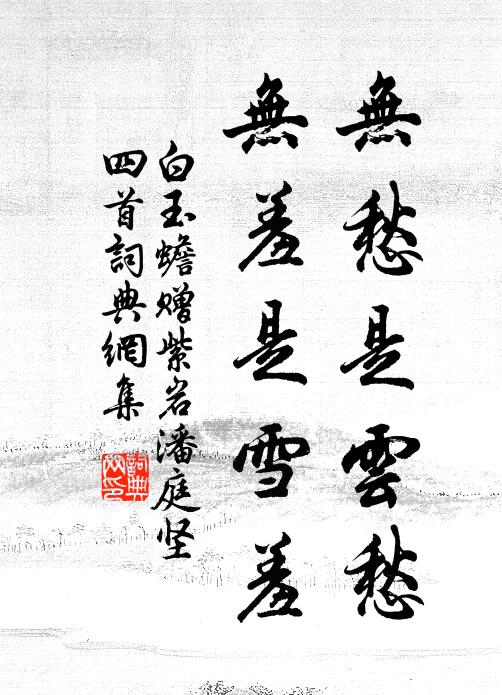 無愁是雲愁
無羞是雪羞
白玉蟾贈紫岩潘庭坚
四首詞典網集
詞典
网印